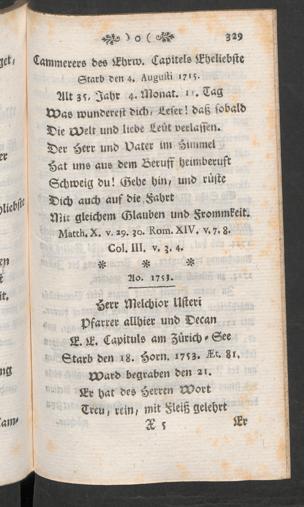 )o( 329
Cammerers des Ehrw. Capitels Eheliebste
Starb den 4. Augusti 1715.
Alt 35. Jahr 4. Monat. Tag
Was wunderest dich, Leser! daß sobald
Die Welt und liebe Leüt verlassen.
Der Herr und Vater im Himmel
Hat uns aus dem Beruff heimberuft
Schweig du! Gehe hin, und rüste
Dich auch auf die Fahrt
Mit gleichem Glauben und Frommkeit.
Matth. X. v. 29. 30. Rom. XIV, v. 7. 8.
Col. III. v. 3. 4.
* * *
Ao. 1753.
Herr Melchior Usteri
Pfarrer allhier und Decan
E. E. Capituls am Zürich-See
Starb den 18. Horn. 1753. Æt. 81,
Ward begraben den 21.
Er hat des Herren Wort
Treu, rein, mit Fleiß gelehrt
X 5 Er